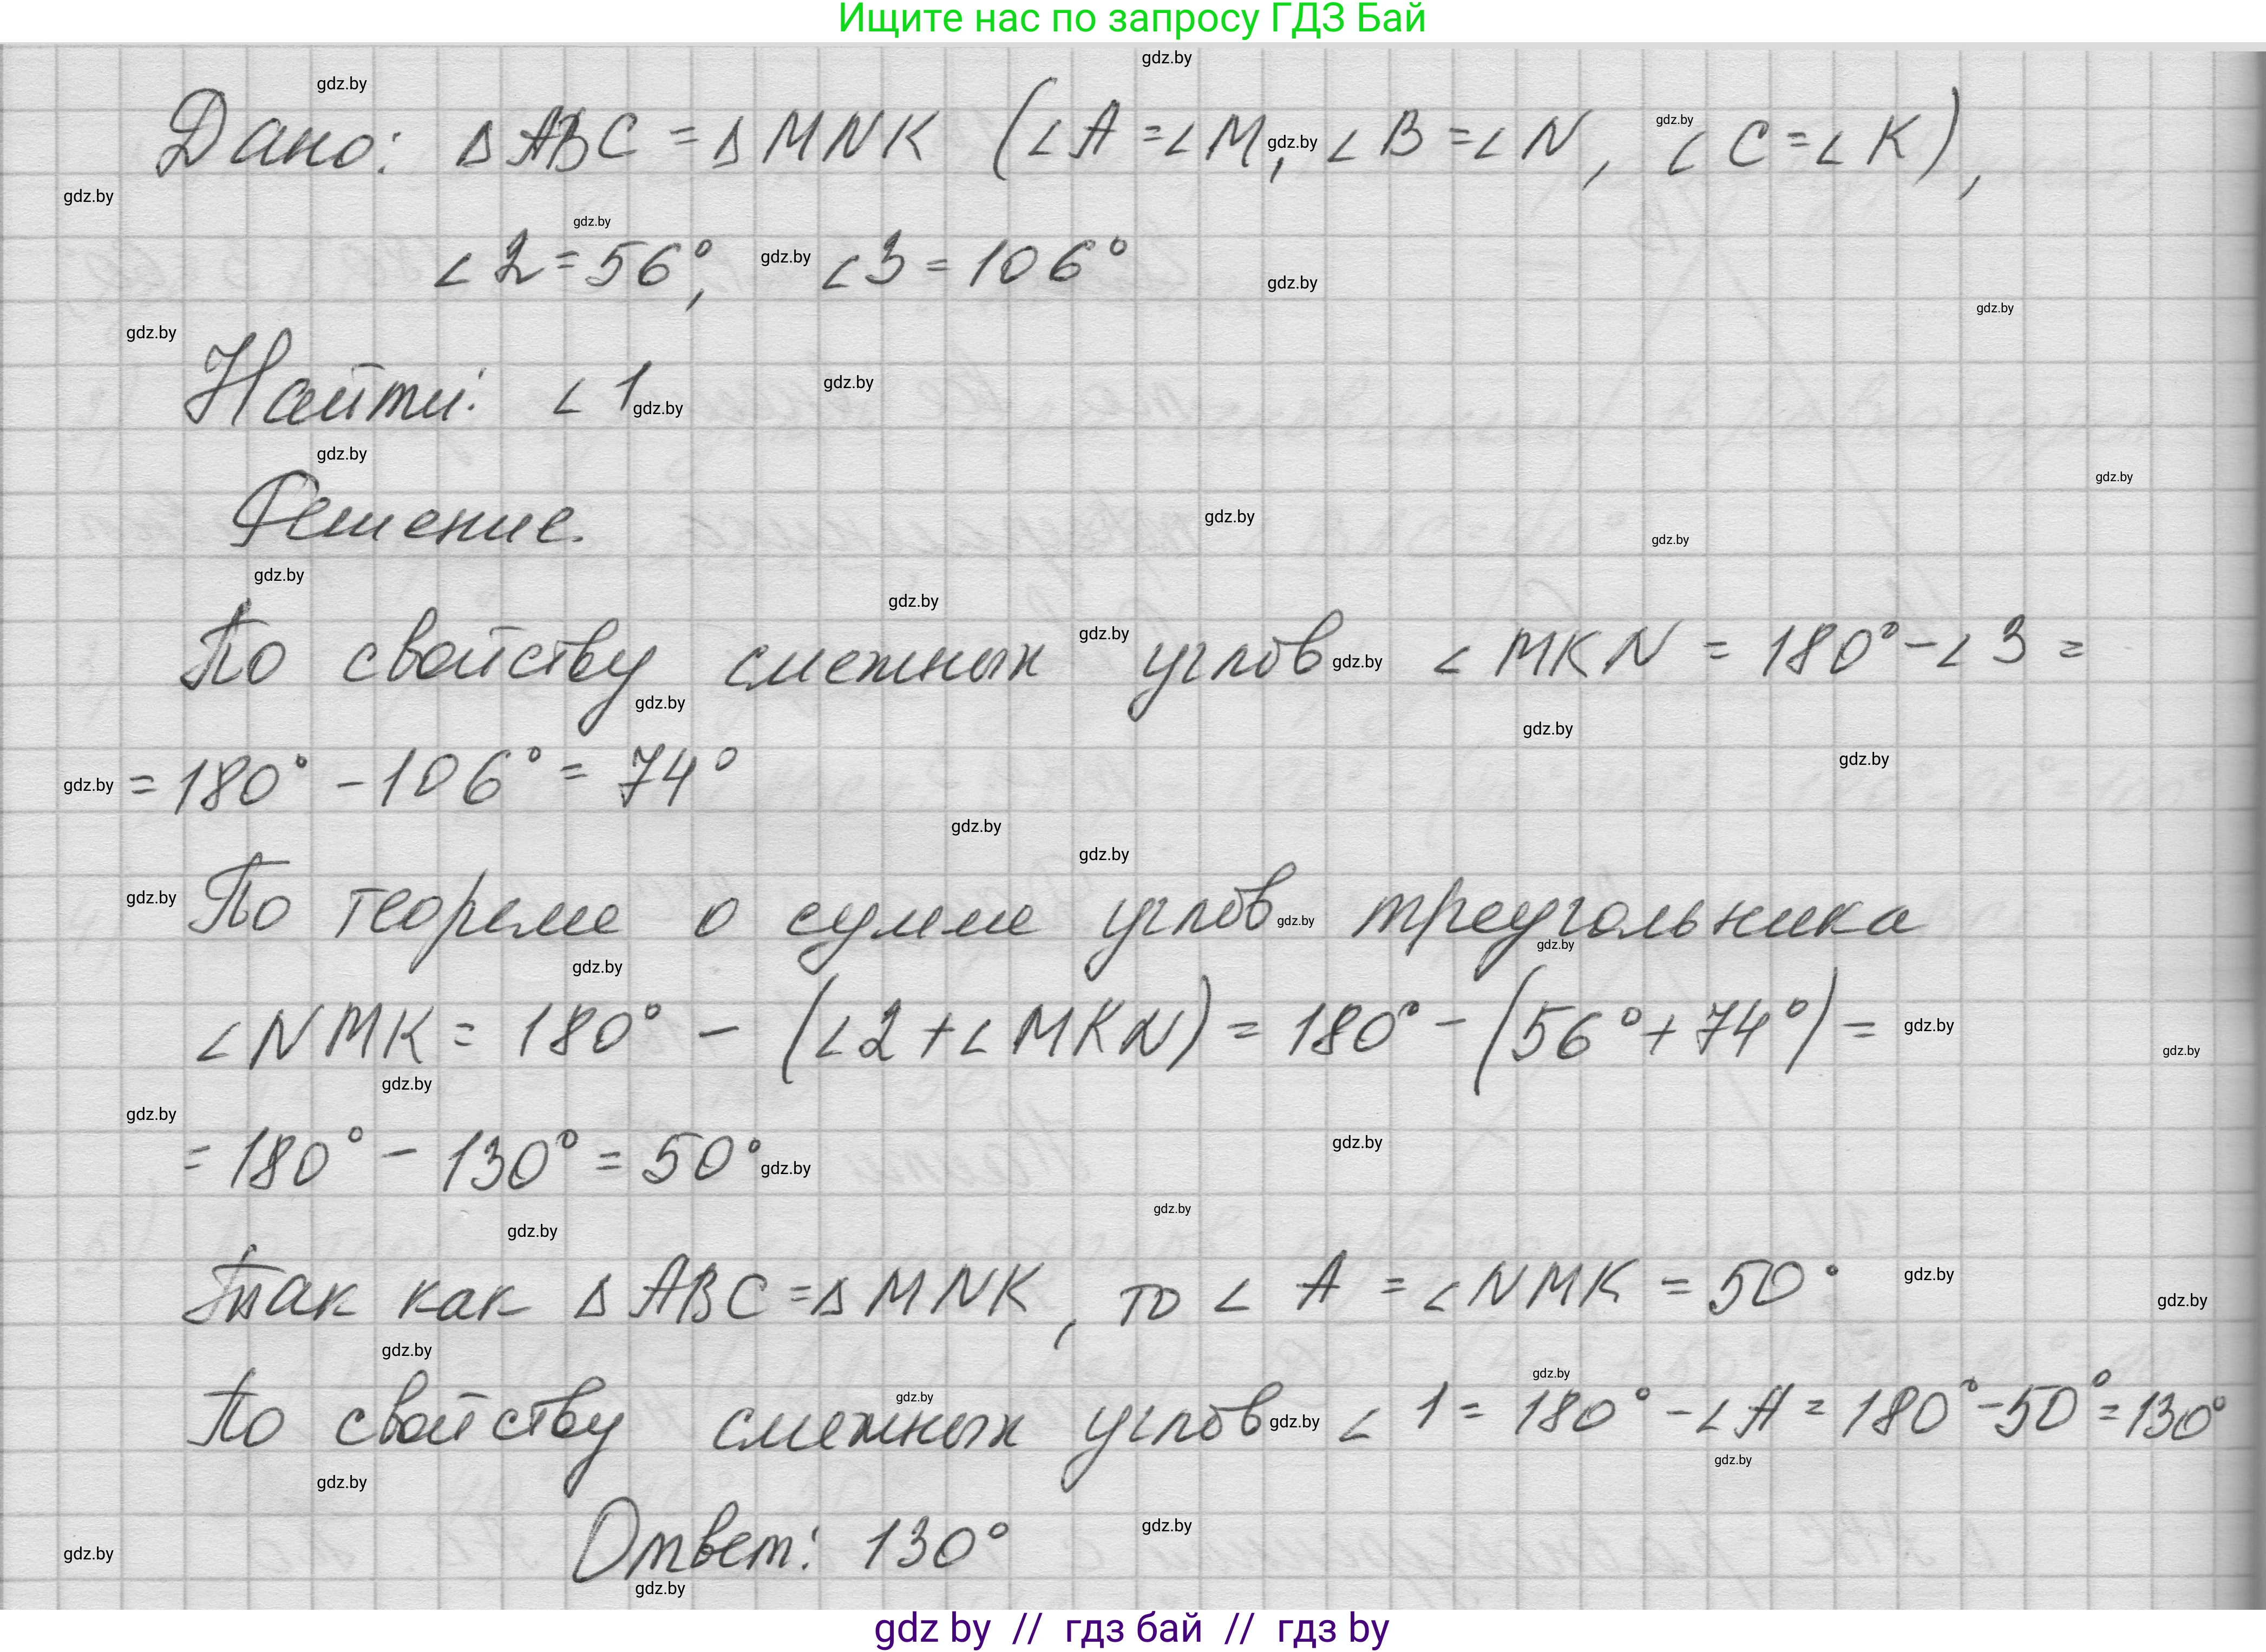 Ищите нас по запросу ГДЗ Бай
Дано: Δ ABC = Δ MNK (∠A = ∠M, ∠B = ∠N, ∠C = ∠K),
∠2 = 56°, ∠3 = 106°
Найти: ∠1
Решение.
По свойству смежных углов ∠MKN = 180° - ∠3 =
= 180° - 106° = 74°
По теореме о сумме углов треугольника
∠NMK = 180° - (∠2 + ∠MKN) = 180° - (56° + 74°) =
= 180° - 130° = 50°
Так как Δ ABC = Δ MNK, то ∠A = ∠NMK = 50°
По свойству смежных углов ∠1 = 180° - ∠A = 180° - 50° = 130°
Ответ: 130°
gdz by // гдз бай // гдз by